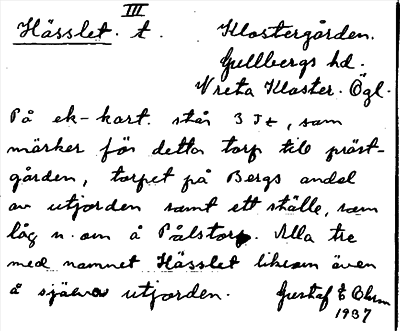 III
Hässlet. t. Klostergården.
Gullbergs hd.
Vreta Kloster. Ögl.
På ek-kart. står 3 st, som
märker för detta torp till präst-
gården, torpet på Bergs andel
av utjorden samt ett ställe, som
låg n. om å Pålstorp. Alla tre
med namnet Hässlet liksom även
å själva utjorden. Gustaf E
1937